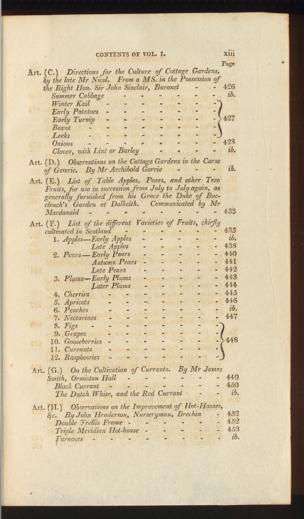 CONTENTS OF VOL. I. xiii
Page
Art. (C.) Directions for the Culture of Cottage Gardens,
by the late Mr Nicol. From a MS. in the Possession of
the Right Hon. Sir John Sinclair, Baronet - - 426
Summer Cabbage - - - - - - ib.
Winter Kail - - - - - -
Early Potatoes - - - - - -
Early Turnip - - - - - - 427
Beans - - - - - -
Leeks - - - - - -
Onions - - - - - - 428
Clover, with Lint or Barley - - - - ib.
Art. (D.) Observations on the Cottage Gardens in the Carse
of Gowrie. By Mr Archibald Gorrie - - ib.
Art. (E.) List of Table Apples, Pears, and other Tree
Fruits, for use in succession from July to July again, as
generally furnished from his Grace the Duke of Buc-
cleuch's Garden at Dalkeith. Communicated by Mr
Macdonald - - - - - - 433
Art. (F.) List of the different Varieties of Fruits, chiefly
cultivated in Scotland - - - - - 435
1. Apples—Early Apples - - - - ib.
Late Apples - - - - 438
2. Pears—Early Pears - - - - 440
Autumn Pears - - - - 441
Late Pears - - - - 442
3. Plums—Early Plums - - - - 443
Later Plums - - - - 444
4. Cherries - - - - - - 445
5. Apricots - - - - - - 446
6. Peaches - - - - - - ib.
7. Nectarines - - - - - - 447
8. Figs - - - - - -
9. Grapes - - - - - -
10. Gooseberries - - - - - - 448
11. Currants - - - - - -
12. Raspberries - - - - - -
Art. (G.) On the Cultivation of Currants. By Mr James
Smith, Ormiston Hall - - - - - 449
Black Currant - - - - - - 450
The Dutch White, and the Red Currant - - ib.
Art. (H.) Observations on the Improvement of Hot-Houses,
&c. By John Henderson, Nurseryman, Brechin - 452
Double Trellis Frame - - - - - 452
Triple Meridian Hot-house - - - - 453
Furnaces - - - - - - ib.